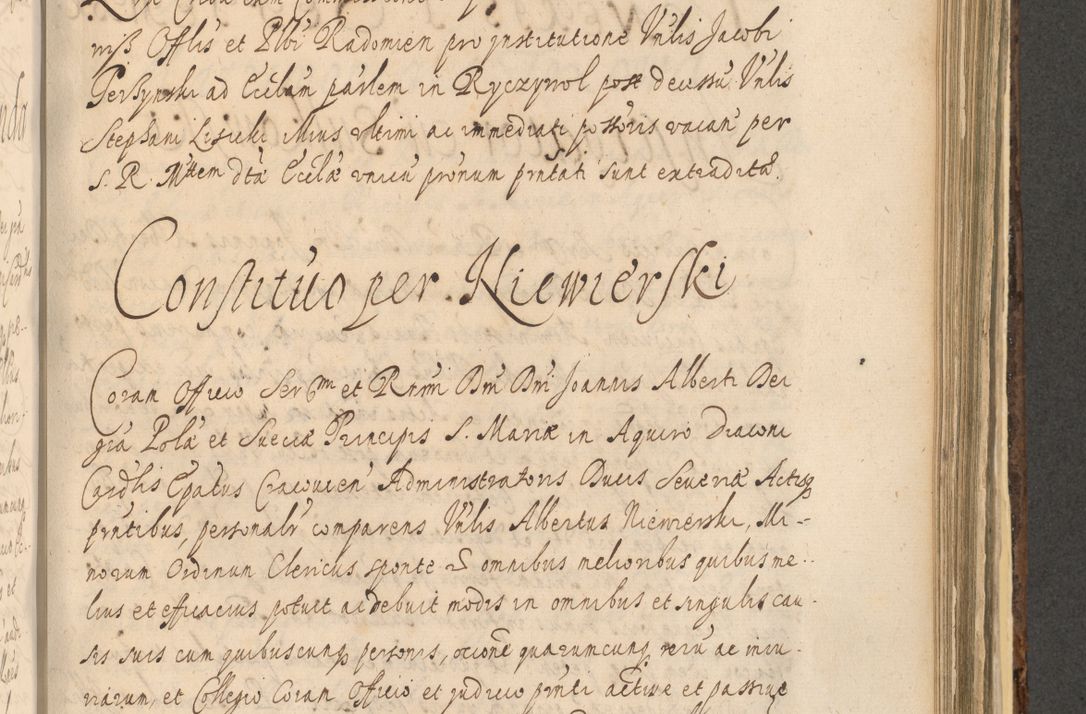 niß Offlis et Plbi Radomien pro institutione Vnlis Jacobi
Gerſynski ad Eccłam pařłem in Ryczywol post decessũ Vnlis
Stephani Lisicki illius vltimi ac immediati possoris vacan per
S. R. Mttem dtæ Ecclæ vnicũ pronum pñtati sunt extradita.
Constitutio per Niewierski
Coram Officio Sermi et Rñmi Dñi Dñi Joannis Alberti Dei
gia Polæ et Sueciæ Principis S. Mariæ in Aquiro Diaconi
Cardlis Epatus Cracovien Administratoris Ducis Severiæ Actisq
pñtibus, personalr comparens Vnlis Albertus Niewierski, Mi-
norum Ordinum Clericus sponte omnibus melioribus quibus me-
lius et efficacius potuit ac debuit modis in omnibus et singulis cau-
sis suis cum quibuscunq personis, occõne quarumcunq rerũ ac iniu-
riarum, et Collegio Coram Officio et judicio pñti active et passive